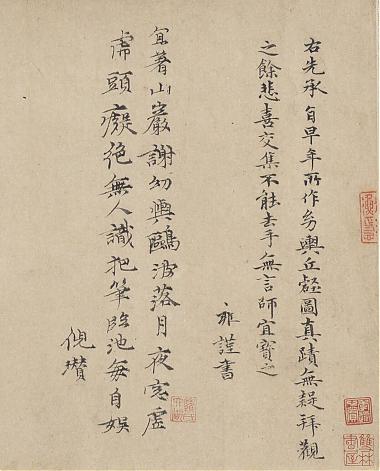 右先承旨早年所作幼輿丘壑圖真蹟無疑拜觀
之餘悲喜交集不能去手無言師宜寶之
雍謹書
宜著山巖謝幼輿鷗波落月夜窗虛
虎頭癡絕無人識把筆臨池每自娛
倪瓚